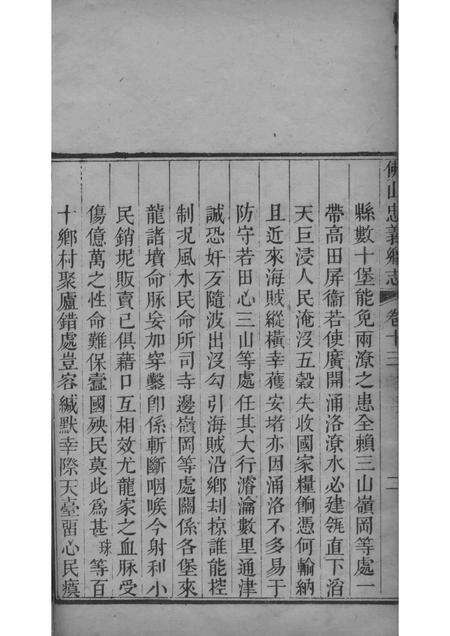 佛山忠義鄉志 卷十三
縣數十堡能免雨潦之患全賴三山嶺岡等處一
帶高田屏衞若使廣開涌洛潦水必建瓴直下滔
天巨浸人民淹沒五穀失收國家糧餉憑何輸納
且近來海賊縱橫幸獲安堵亦因涌洛不多易于
防守若田心三山等處任其大行濬淪數里通津
誠恐奸歹隨波出沒勾引海賊沿鄉刼掠誰能控
制况風水民命所司寺邊嶺岡等處關係各堡來
龍諸墳命脉妄加穿鑿卽係斬斷咽喉今射利小
民銷坭販賣已俱藉口互相效尤龍家之血脉受
傷億萬之性命難保蠹國殃民莫此爲甚珠等百
十鄉村聚廬錯處豈容緘默幸際天臺畱心民瘼